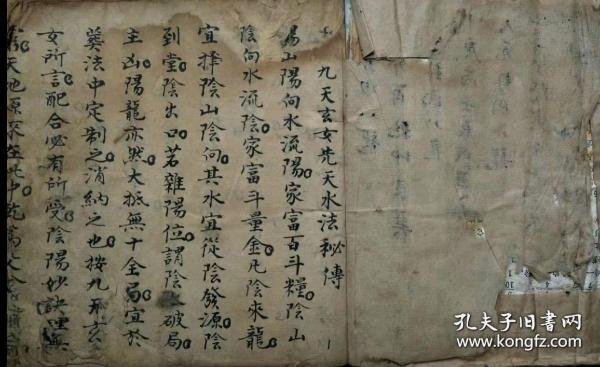 九天玄女先天水法秘傳
陽山陽向水流陽家富百斗糧陰山
陰向水流陰家富斗量金凡陰來龍
宜擇陰山陰向其水宜從陰發源陰
到堂陰出口若雜陽位謂陰破局
主凶陽龍亦然大抵無十全局宜於
葬法中定制之消納之也按九天玄
女所言配合必有所受陰陽妙訣理無
天地原
孔夫子旧書网
www.kongfz.com